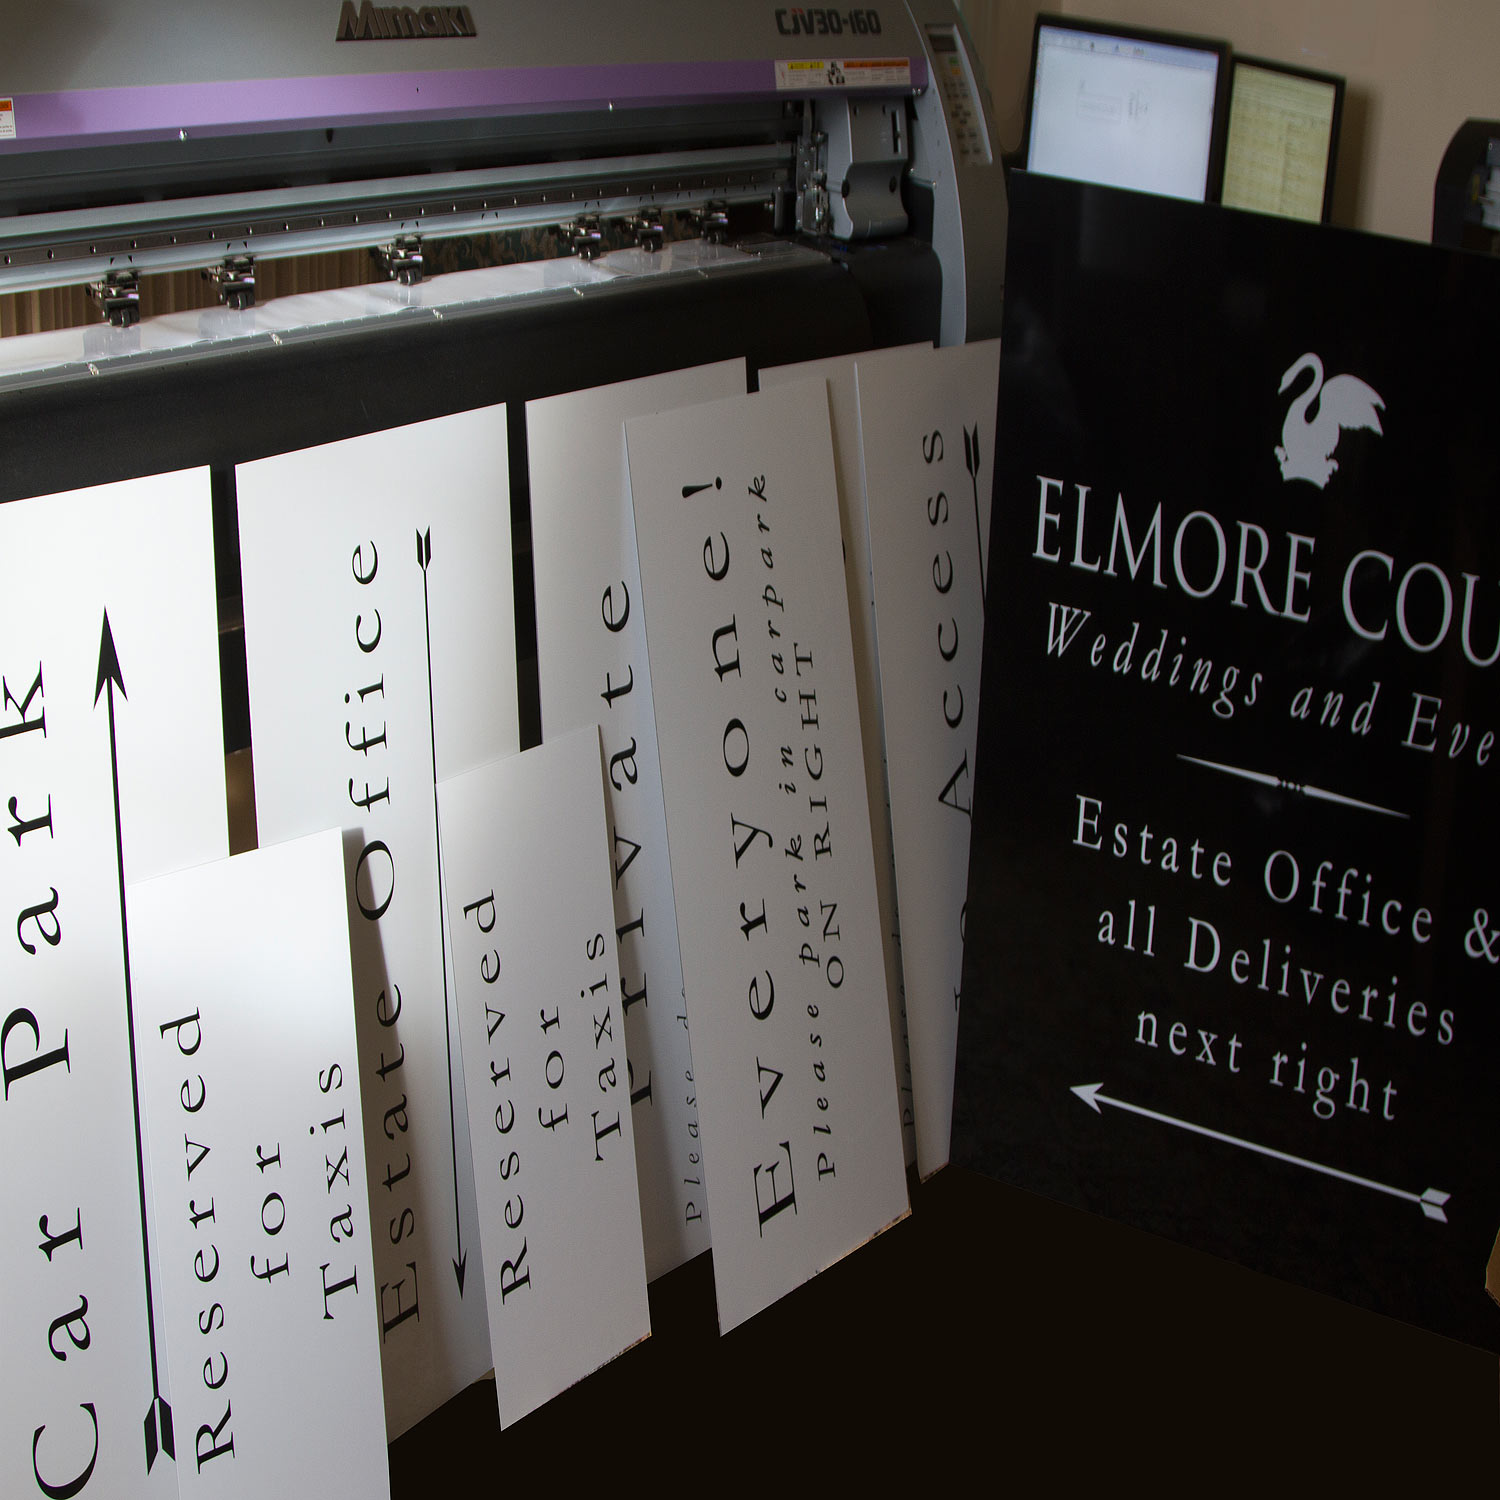 Mimaki
CJV30-160
Car Park
Reserved
for
Taxis
Estate Office
Reserved
for
Taxis
Private
Please
Everyone!
Please park in carpark
ON RIGHT
Access
ELMORE COU
Weddings and Eve
Estate Office &
all Deliveries
next right